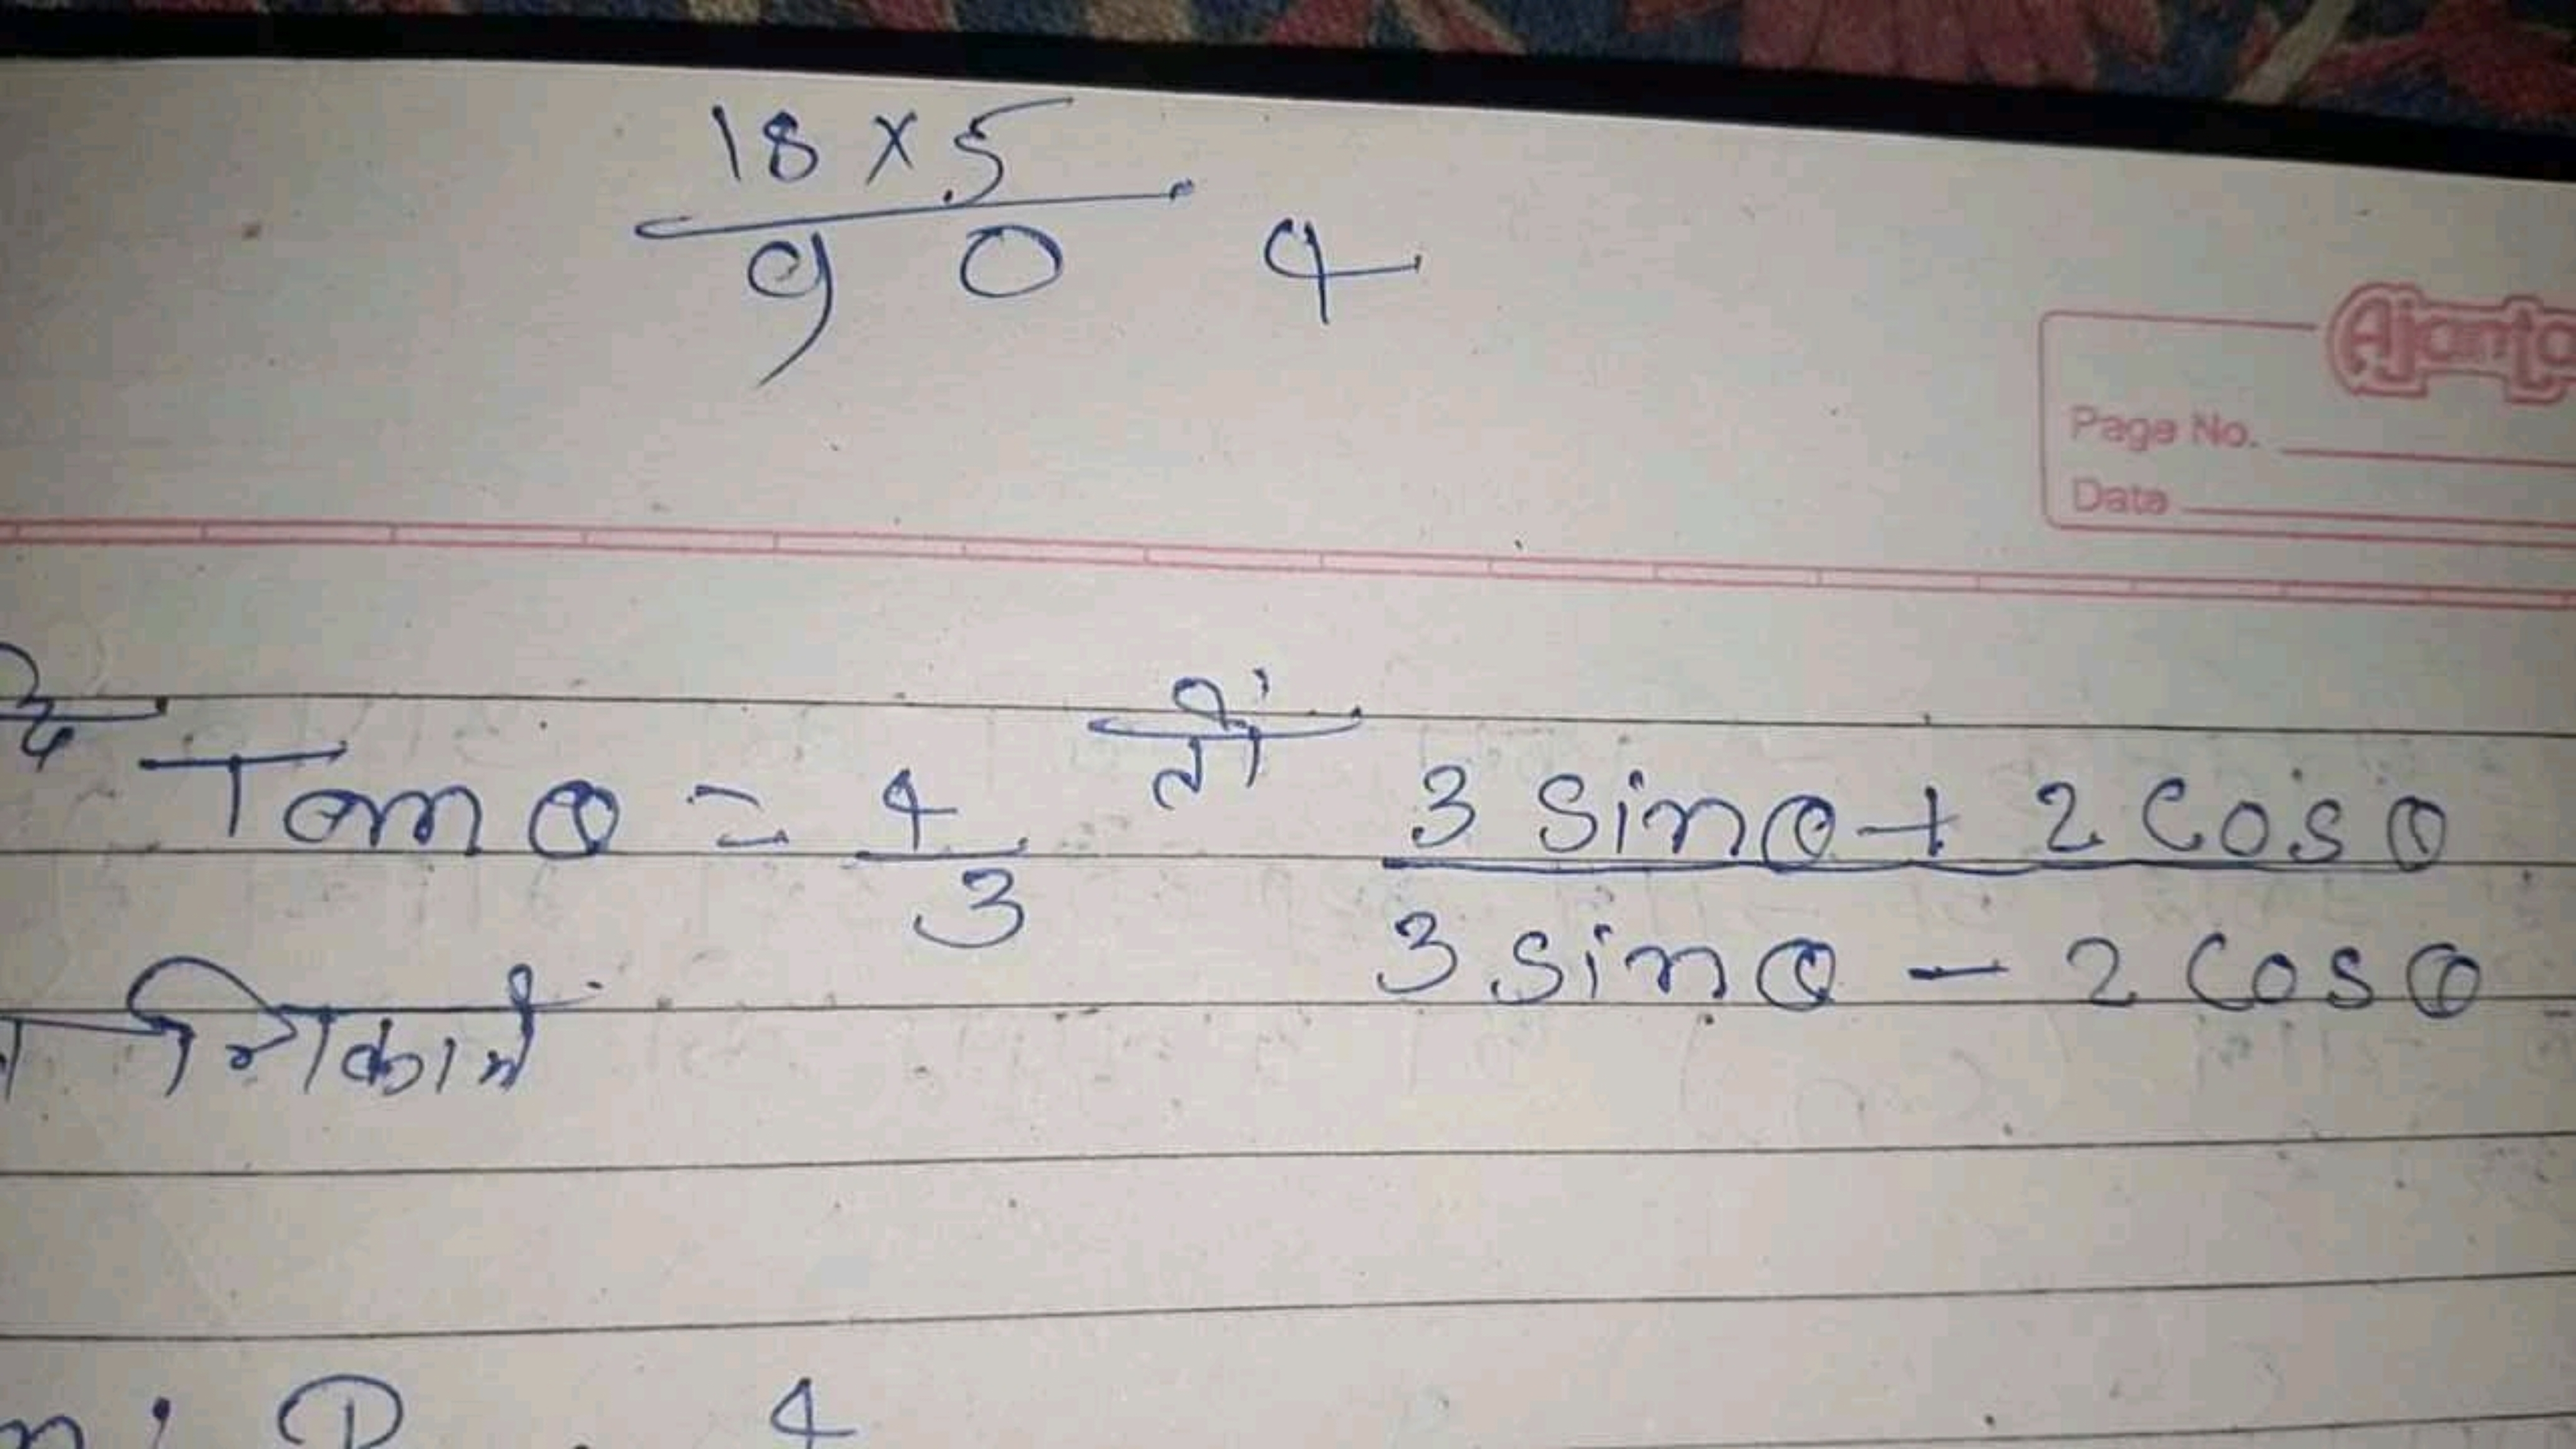 18 x 5
9 0 4
Ajanta
Page No.
Date
Tan θ = 4/3 तो 3 Sinθ + 2 Cos θ
3 Sin θ - 2 Cos θ
निकाले
4